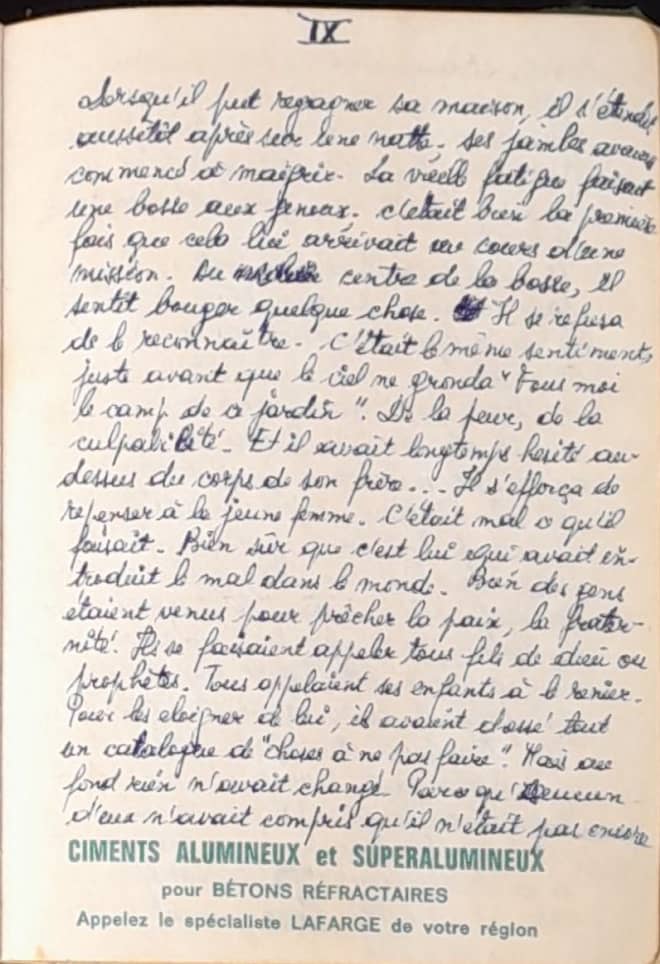 IX
Lorsqu'il put regagner sa maison, il s'étendit
aussitôt après sur une natte. Ses jambes avaient
commencé à maigrir. La vieille fatigue faisait
une bosse aux genoux. c'était bien la première
fois que cela lui arrivait au cours d'une
mission. Au centre de la bosse, il
sentit bouger quelque chose. Il se refusa
de le reconnaître. C'était le même sentiment,
juste avant que le ciel ne gronda "Fous moi
le camp de ce jardin". De la peur, de la
culpabilité. Et il avait longtemps hésité au-
dessus du corps de son frère... Il s'efforça de
repenser à la jeune femme. C'était mal ce qu'il
faisait. Bien sûr que c'est lui qui avait in-
troduit le mal dans le monde. Bien des gens
étaient venus pour prêcher la paix, la frater-
nité. Ils se faisaient appeler tous fils de dieu ou
prophètes. Tous appelaient ses enfants à le renier.
Pour les eloigner de lui, ils avaient dressé tout
un catalogue de "choses à ne pas faire". Mais au
fond rien n'avait changé. Parce qu'aucun
d'eux n'avait compris qu'il n'était pas encore
CIMENTS ALUMINEUX et SUPERALUMINEUX
pour BÉTONS RÉFRACTAIRES
Appelez le spécialiste LAFARGE de votre région